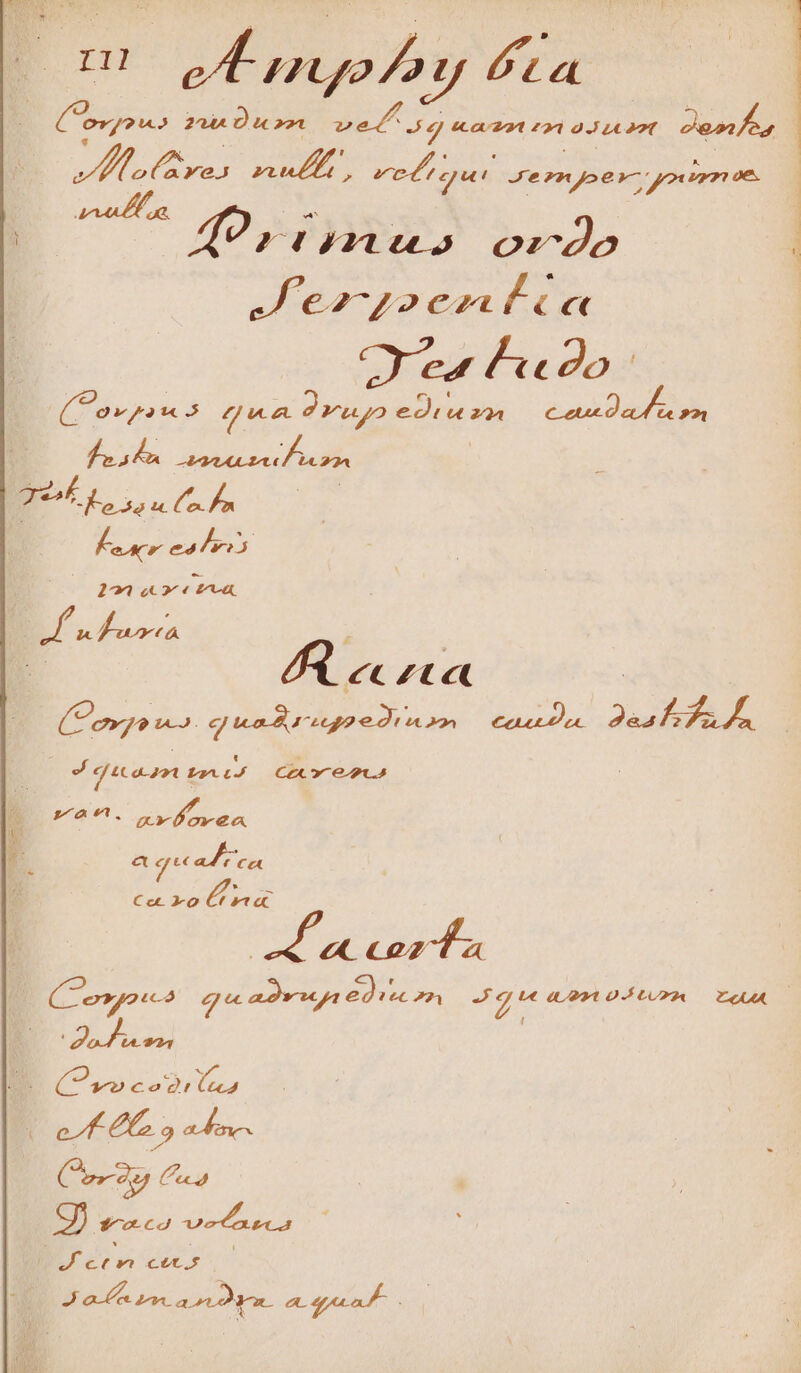 III Amphybia
Corpus nudum vel squammosum dentes
Molares nulli, reliqui semper, pinnae
nullae
Primus ordo
Serpentia
Testudo
Corpus quadrupedium caudatum
testa munitum
Test. tessulata
terrestris
marina
Lutaria
Rana
Corpus quadrupedium cauda destituta
squammis carens
ran. arborea
aquatica
carolina
Lacerta
Corpus quadrupedium squamosum cau
datum
Crocodilus
Allegator
Cordylus
Draco volans
Scincus
Salamandra aquat.